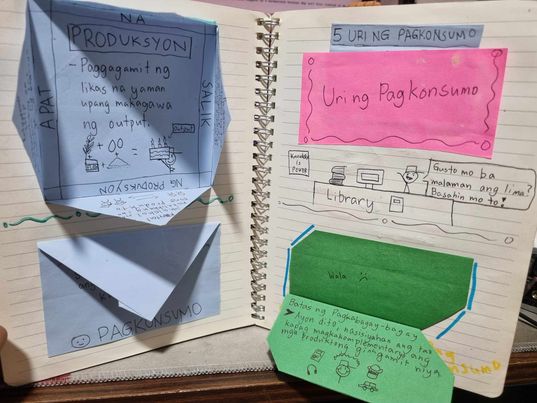 NA
PRODUKSYON
APAT
SALIK
- Paggagamit ng
likas na yaman
upang makagawa
ng output.
Output
NG PRODUKSYON
ang
PAGKONSUMO
5 URI NG PAGKONSUMO
Uri ng Pagkonsumo
Knowledge
is
POWER
Gusto mo ba
malaman ang lima?
Basahin mo to!
Library
Wala
Batas ng Pagbabagay-bagay
➤ Ayon dito, nasisiyahan ang tao
kapag magkakomplementaryo ang
mga produktong ginagamit niya